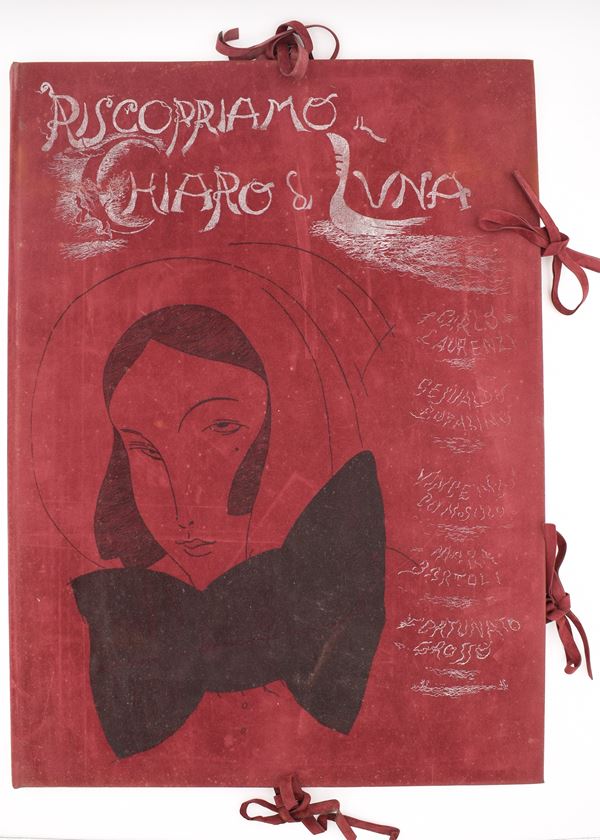 RISCOPRIAMO il
CHIARO di LUNA
CARLO
LAURENZI
GESUALDO
BUFALINO
VINCENZO
CONSOLO
MARA
BARTOLI
FORTUNATO
GROSSO